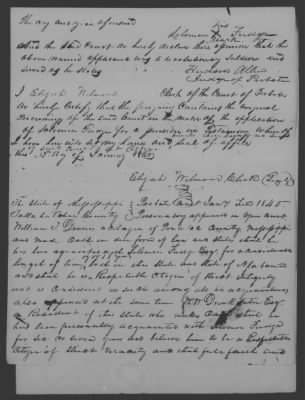 The day and year aforesaid
his
Solomon X Fudge
mark
And the said Court do hereby declare their opinion that the
above named applicant was a Revolutionary Soldier and
served as he States
Hudson Allen
Judge of Probate
I Elijah Wilmoro Clerk of the Court of Probate
do hereby Certify that the foregoing Contains the original
Proceedings of the said Court in the matter of the application
of Solomon Fudge for a pension In Testimony Whereof
I have hereunto set my hand and Seal of office
this 5 day of January 1845
Elijah Clerk
The State of Mississippi Probate Court Jany Term 1845
County Personally appeared in open Court
William a Citizen of County Mississippi
and made oath in due form of law and States that he
has been acquainted with Solomon Fudge for a considerable
length of time in this State and State of Alabama
and that he is a Respectable Citizen of Strict integrity
and is a resident in such among all his acquaintances
also appeared at the same time Esqr
a Resident of this State who makes oath that he
has been personally acquainted with Solomon Fudge
for Six or Seven years and believes him to be a Respectable
Citizen of Strict veracity and